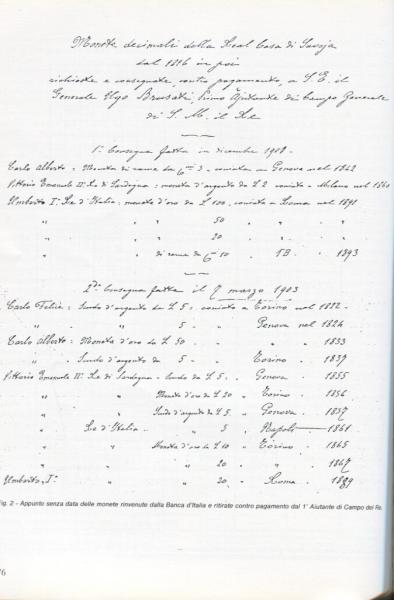 Monete decimali della Real Casa di Savoja
dal 1816 in poi
richieste e consegnate, contro pagamento, a S. E. il
Generale Ugo Brusati, Primo Ajutante di Campo Generale
di S. M. il Re
1ª Consegna fatta in dicembre 1901 -
Carlo Alberto = Moneta di rame da c. 3 - coniata a Genova nel 1842
Vittorio Emanuele II: Re di Sardegna: moneta d'argento da L 2 coniata a Milano nel 1860
Umberto Iº: Re d'Italia: moneta d'oro da L 100, coniata a Roma nel 1891
" " 50 " " "
" " 20 " " "
" di rame da c. 10 . TB . 1893
2da Consegna fatta il 7 marzo 1903
Carlo Felice: Scudo d'argento da L 5: coniato a Torino nel 1822 -
" " " 5 - " Genova nel 1824
Carlo Alberto - Moneta d'oro da L 50 - " " 1833
" Scudo d'argento da 5 - " Torino - 1837
Vittorio Emanuele IIº: Re di Sardegna - Scudo da L 5. " Genova . 1855
" " Moneta d'oro da L 20 " Torino . 1856
" " Scudo d'argento da L 5. " Genova . 1857
" Re d'Italia - " 5 " Napoli 1861
" " Moneta d'oro da L 10 " Torino . 1865
" " " 20 " " 1867
Umberto, Iº " " 20 . " Roma . 1889
Fig. 2 - Appunto senza data delle monete rinvenute dalla Banca d'Italia e ritirate contro pagamento dal 1° Aiutante di Campo del Re.